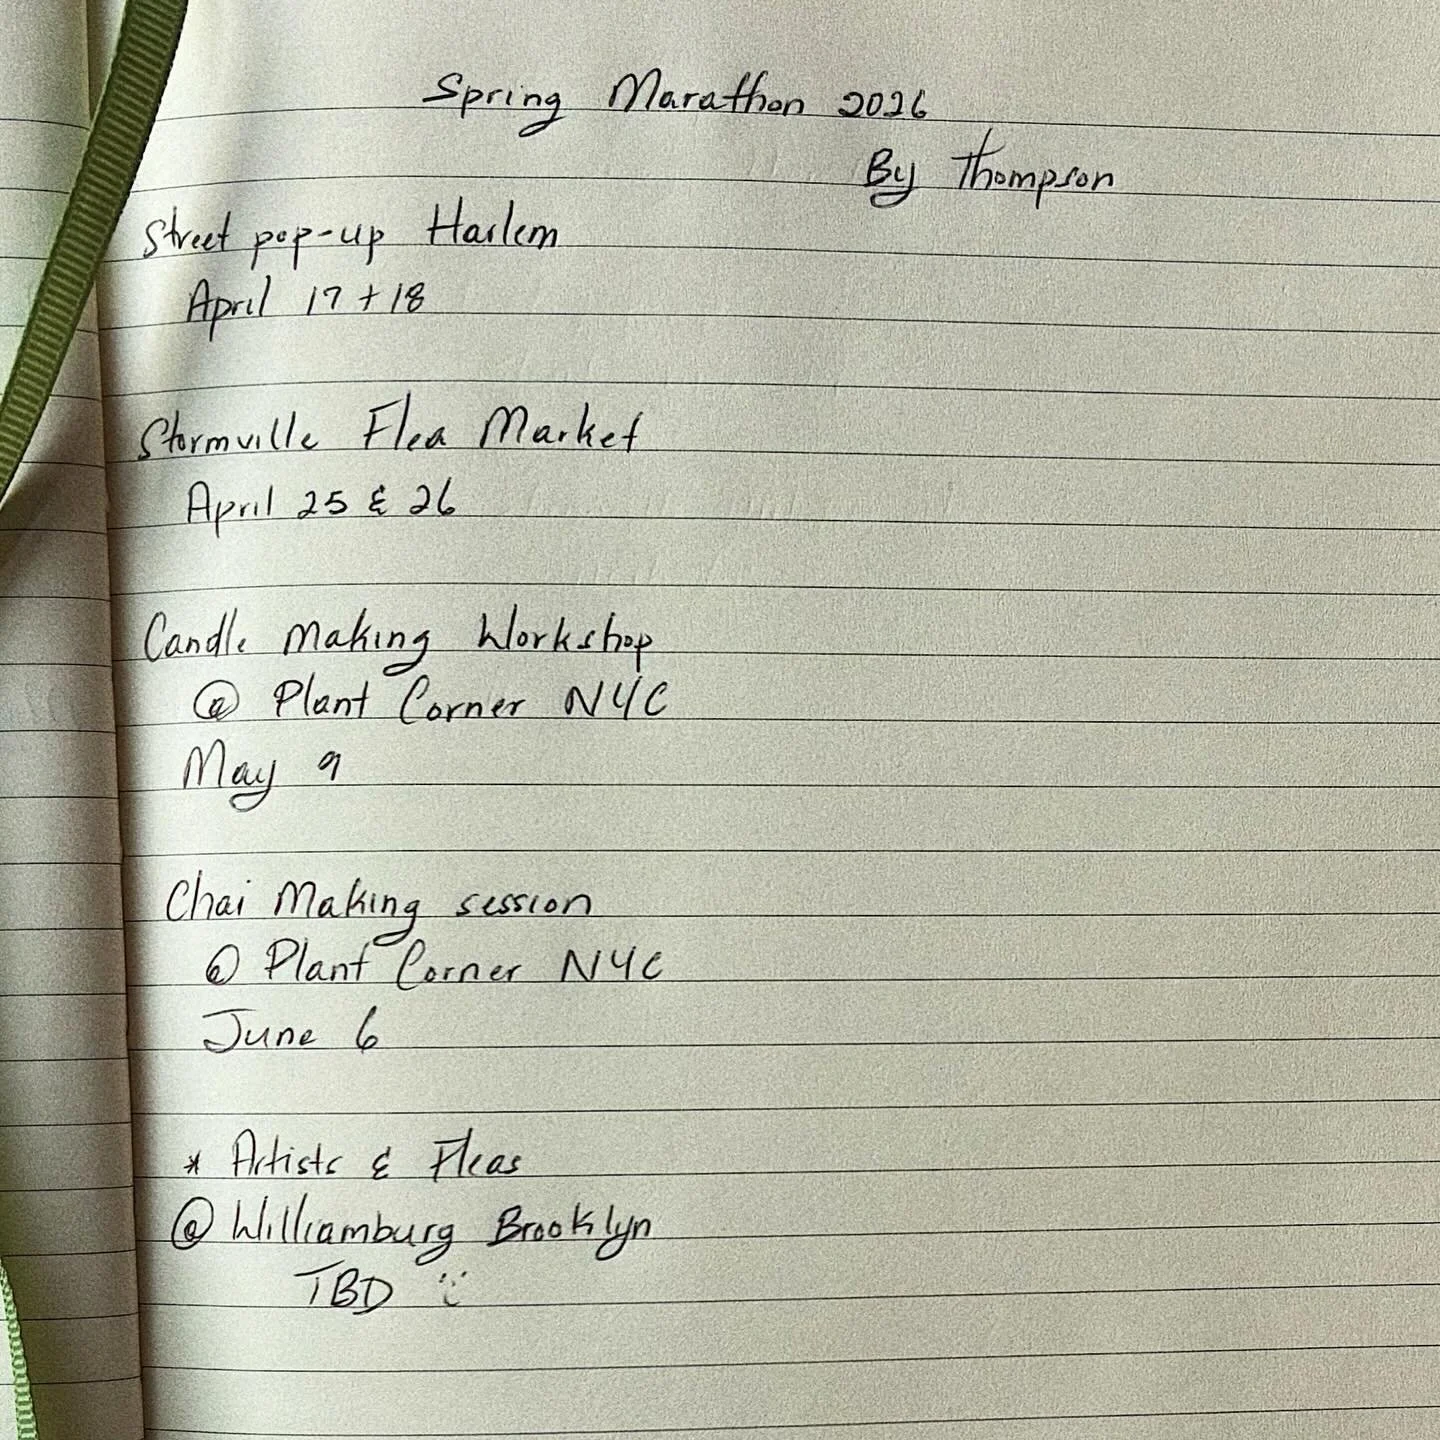 Spring Marathon 2026
By Thompson
Street pop-up Harlem
April 17 + 18
Stormville Flea Market
April 25 & 26
Candle Making Workshop
@ Plant Corner NYC
May 9
Chai Making session
@ Plant Corner NYC
June 6
* Artists & Fleas
@ Williamburg Brooklyn
TBD :)